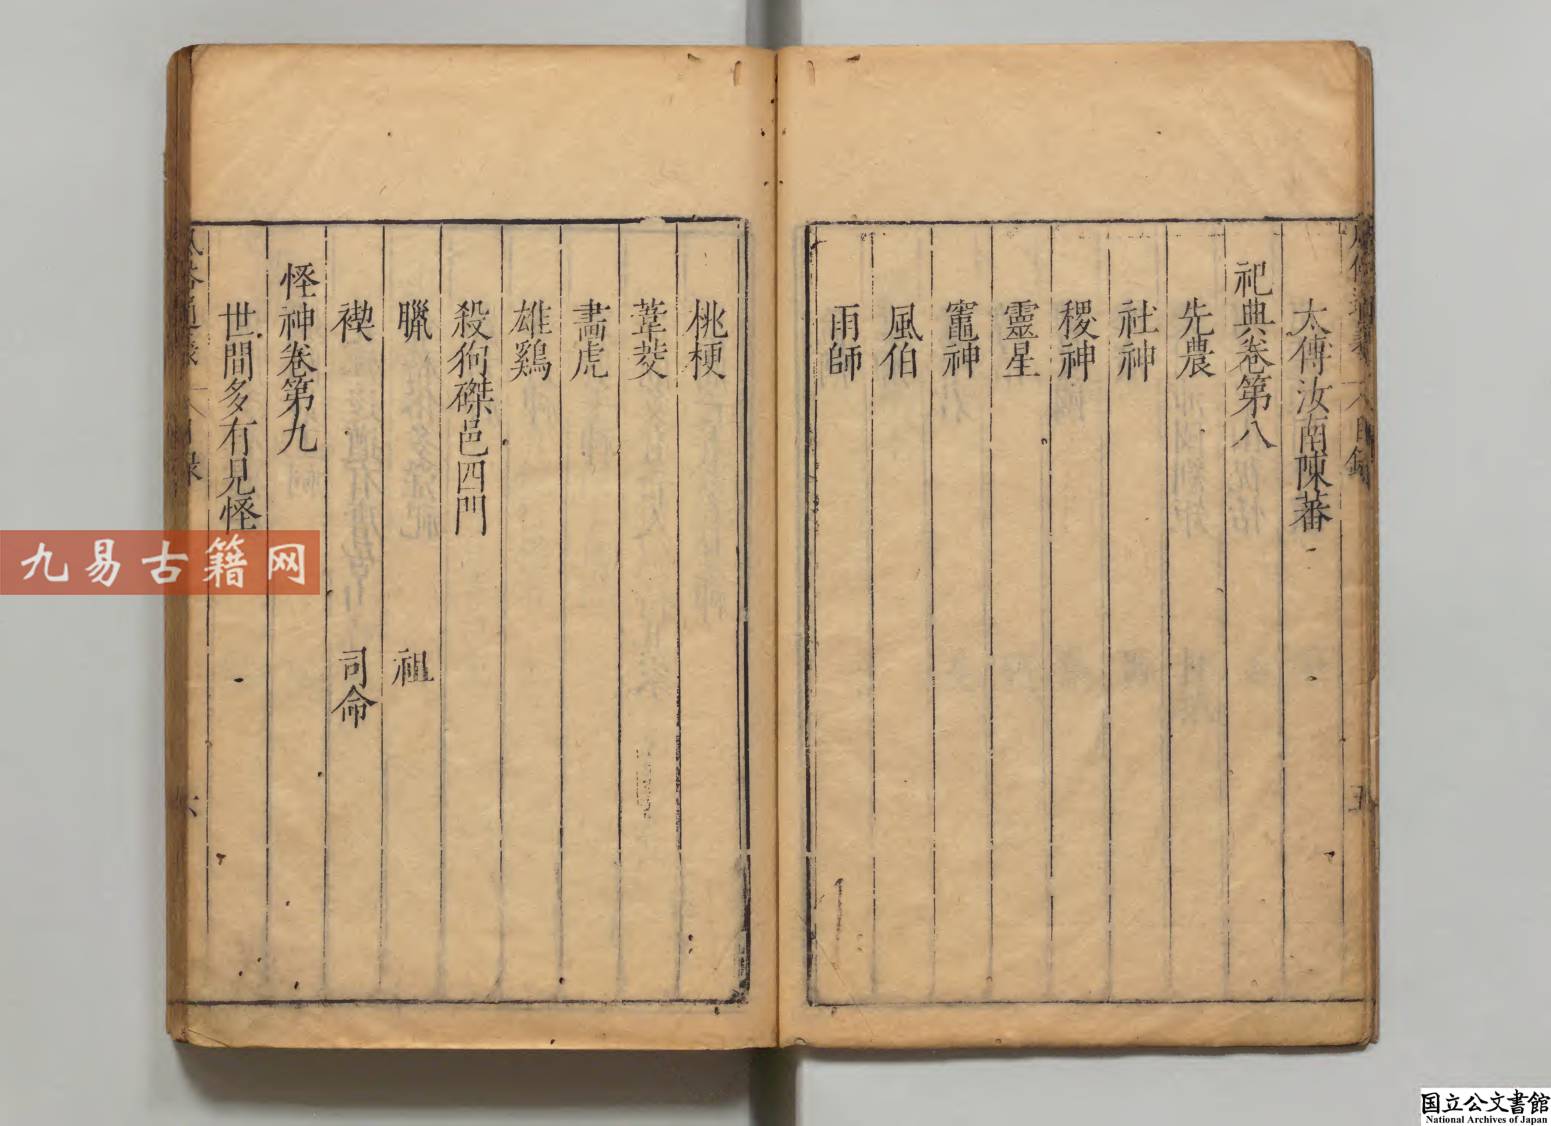 太傅汝南陳蕃
祀典卷第八
先農
社神
稷神
靈星
竈神
風伯
雨師
桃梗
葦茭
畫虎
雄鷄
殺狗磔邑四門
臘 祖
禊 司命
怪神卷第九
世間多有見怪
九易古籍网
国立公文書館
National Archives of Japan